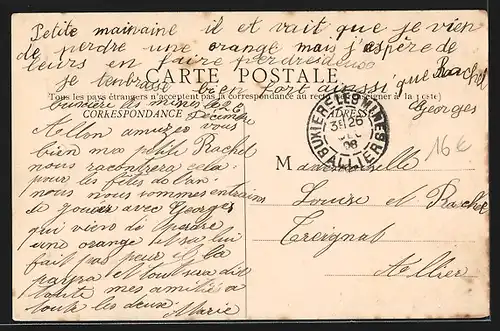 Petite mainaine il et vait que je vien
de perdre une orange mais j'espère de
leurs en faire perdre
je tenbrasse bien fort aussi que Rachel
Georges
CARTE POSTALE
Tous les pays étrangers n'acceptent pas la correspondance au recto (Se renseigner à la poste)
CORRESPONDANCE
ADRESSE
Buxière les mines le 26
Décembre
Allon amusez vous
bien mes petite Rachel
nous racontera cela
pour les fêtes de l'an
nous nous sommes entrain
de jouer avec Georges
qui vien de perdre
une orange et sa lui
fait pas peur il la
payra et
toute mes amitiés a
toute les deux
Marie
BUXIERES-LES-MINES
26
08
ALLIER
Mademoiselle
Louise et Rachel
Treignat
Allier
16 €